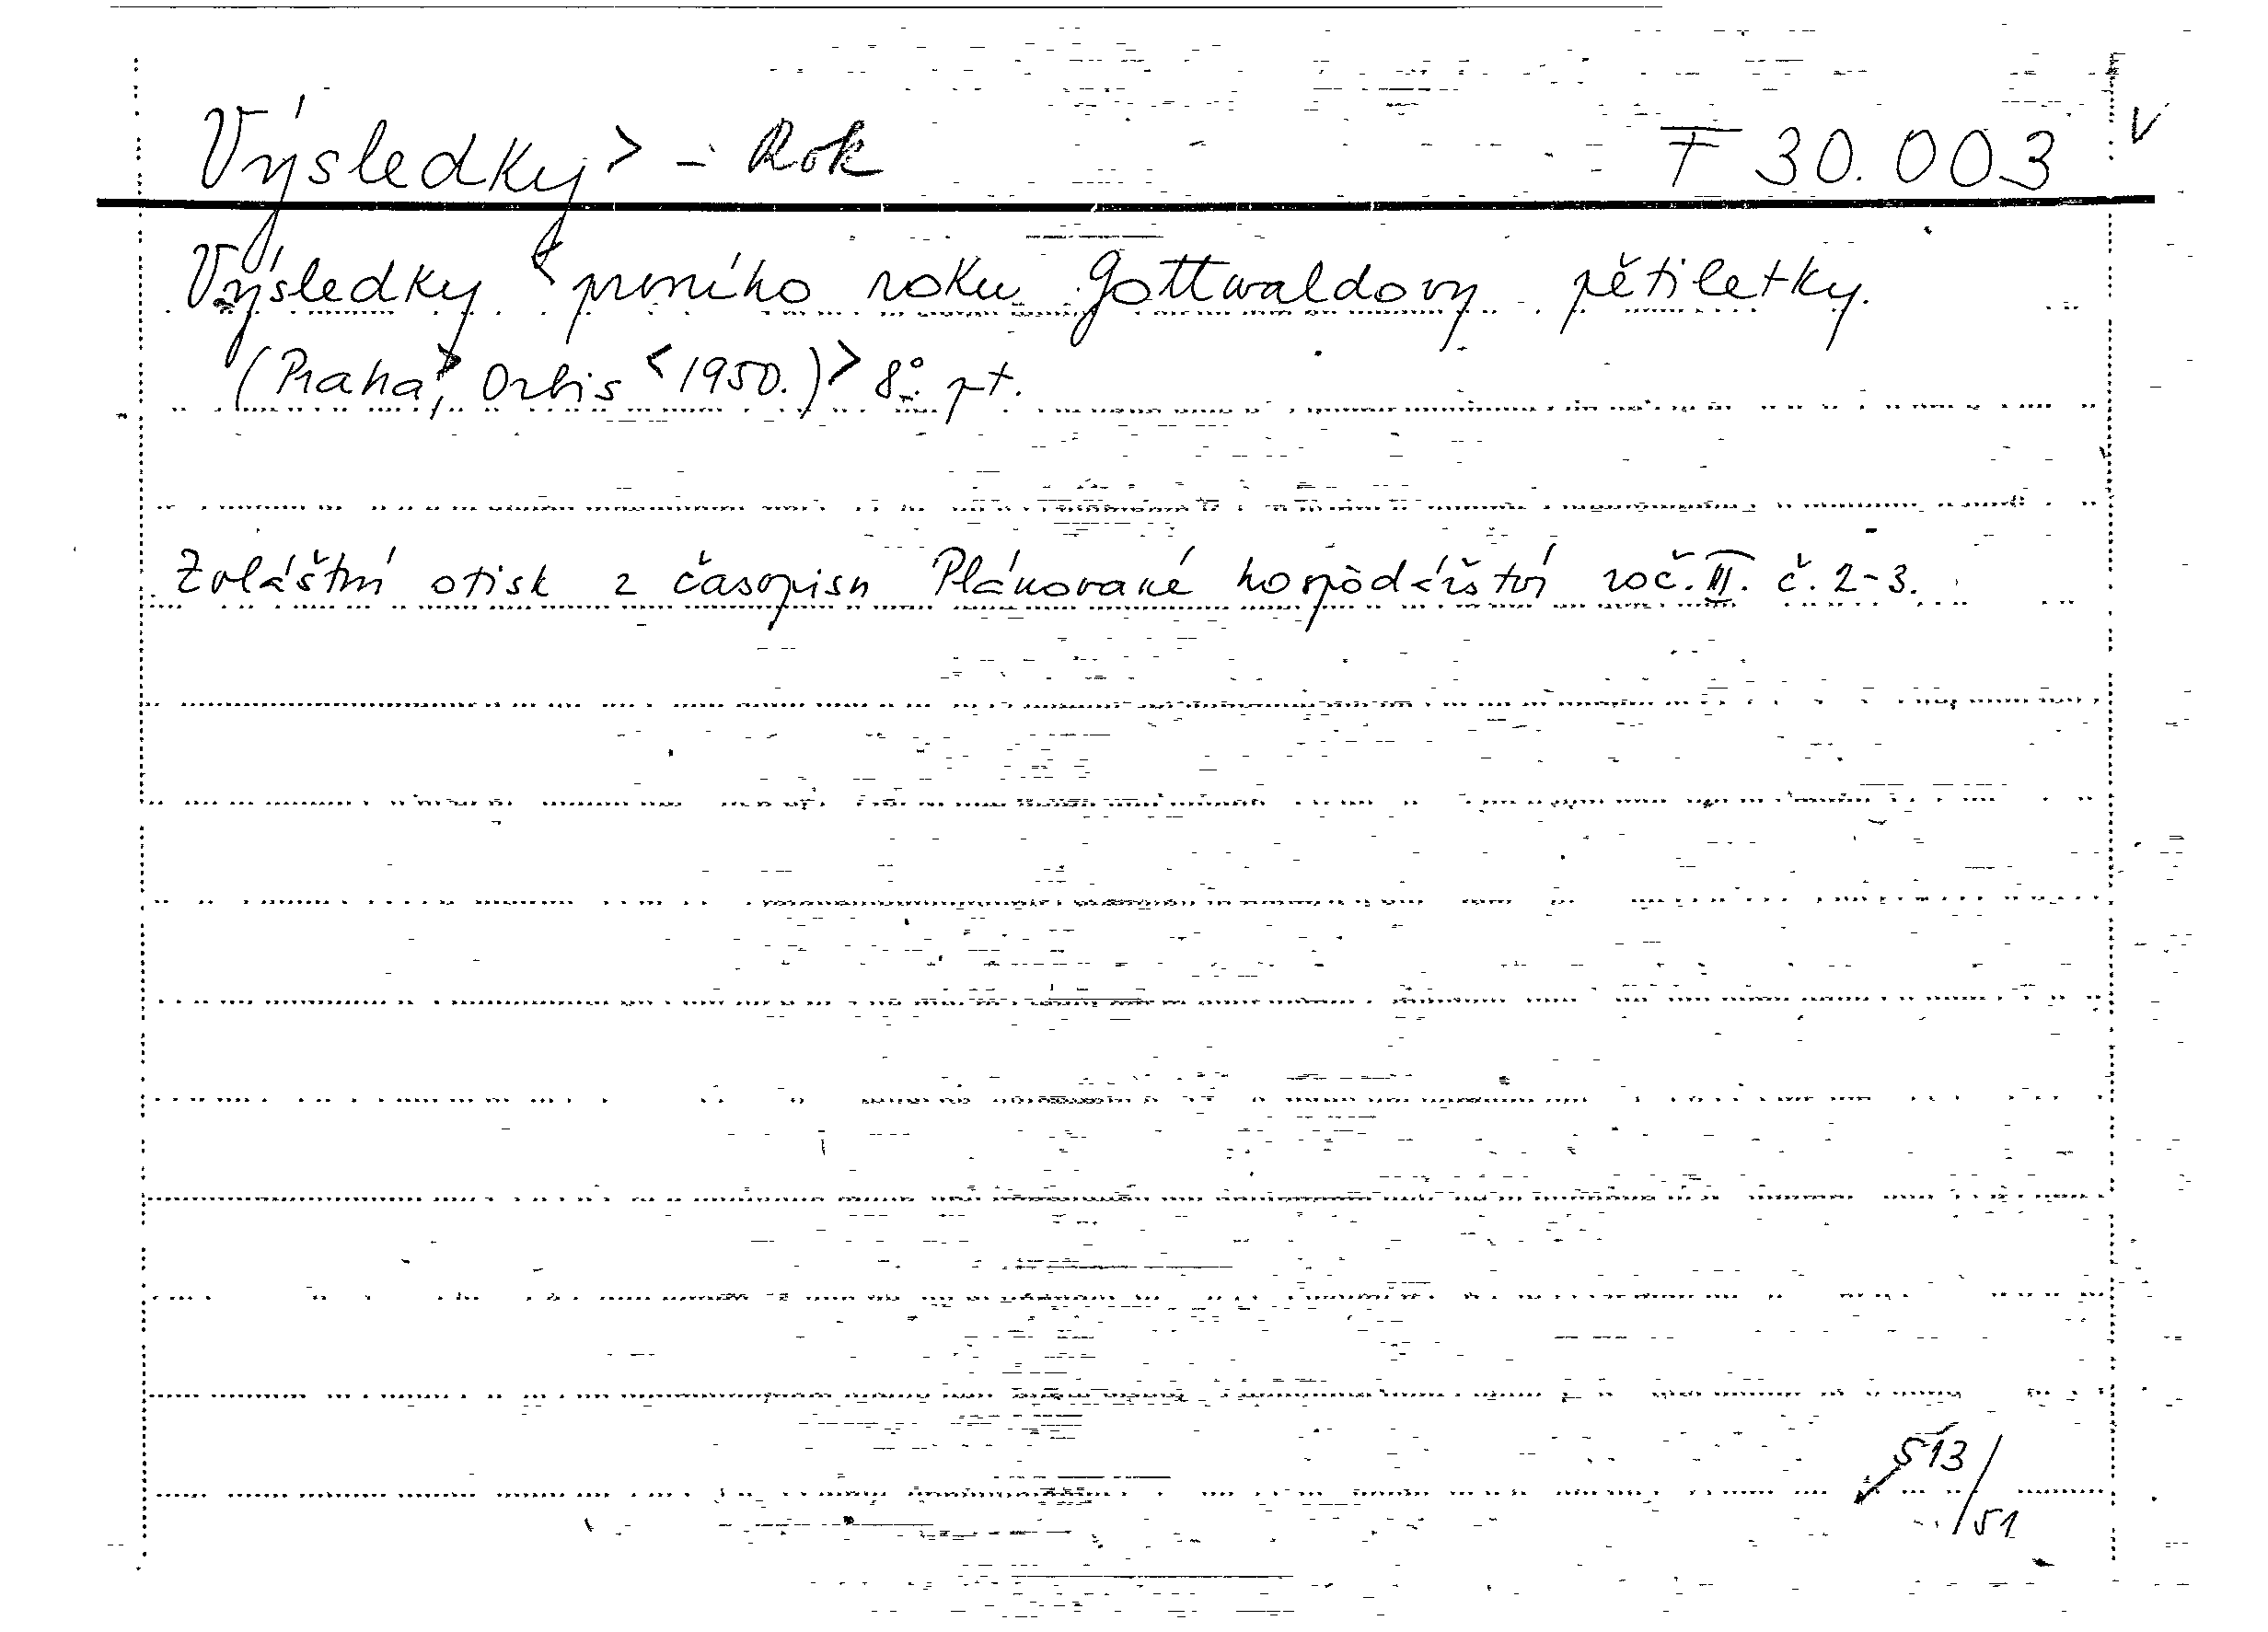 Výsledky > - Rok T 30.003 V
Výsledky < prvního roku Gottwaldovy pětiletky.
(Praha,> Orbis < 1950.) > 8° pt.
Zvláštní otisk z časopisu Plánované hospodářství roč. III. č. 2-3.
513/51